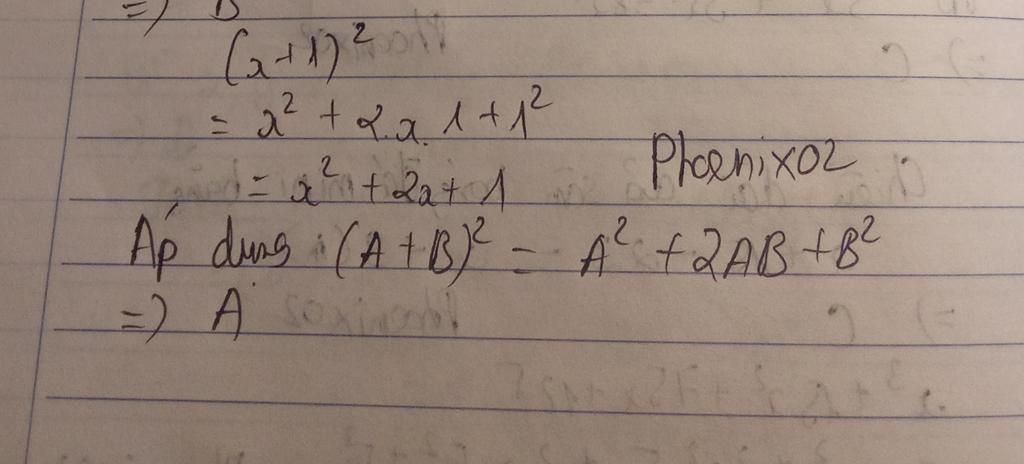 =) B
(x+1)²
= x² + 2.x.1+1²
= x² +2x+1
Phoenix02
Áp dụng (A+B)² = A² +2AB +B²
=) A